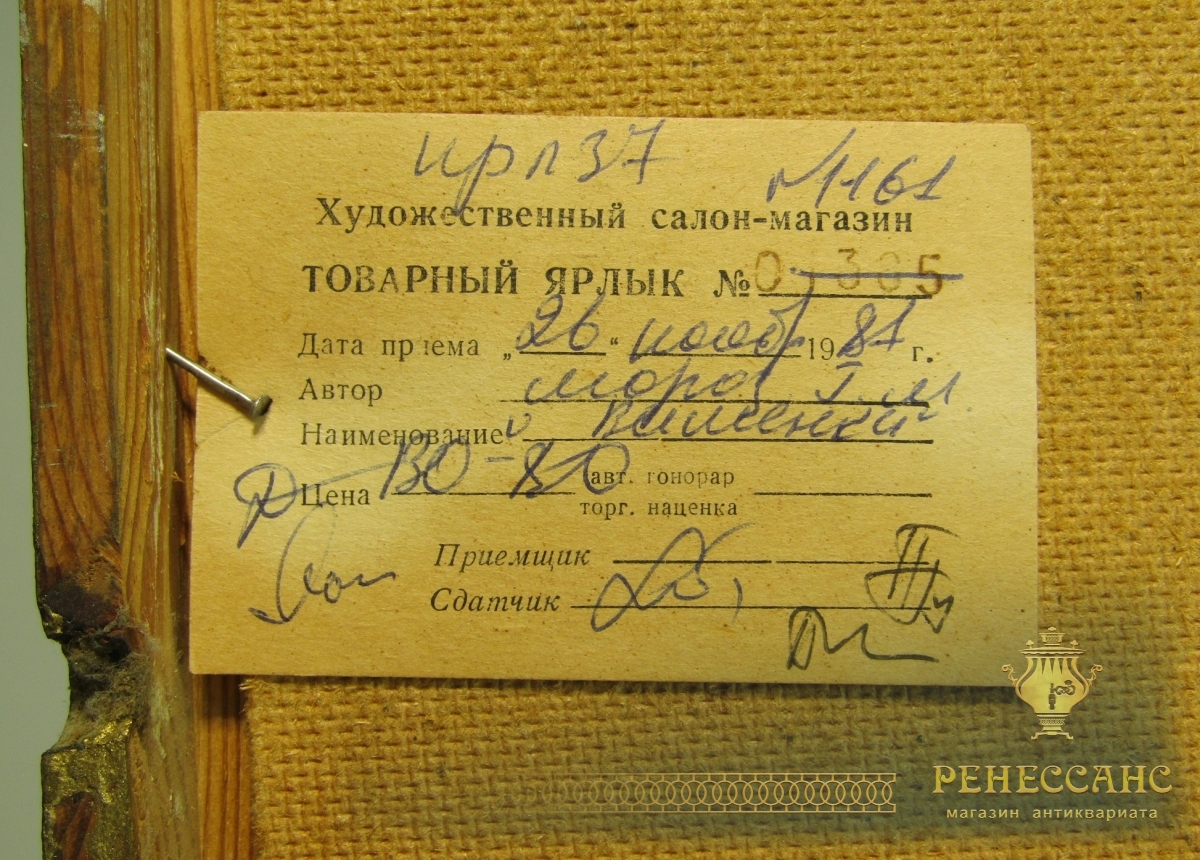 ирл 37
№1161
Художественный салон-магазин
ТОВАРНЫЙ ЯРЛЫК № 0 3 5
Дата приема „26“ нояб 1987 г.
Автор Мороз Г. М.
Наименование
Цена 80-80 авт. гонорар
торг. наценка
Приемщик
Сдатчик
III
РЕНЕССАНС
магазин антиквариата